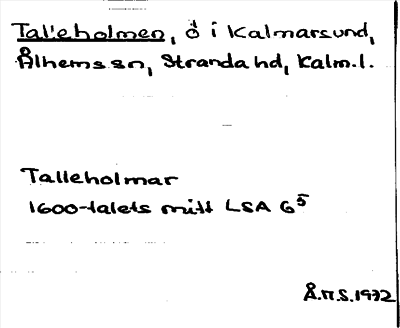 Talleholmen, ö i Kalmarsund,
Ålhems sn, Stranda hd, Kalm.l.
Talleholmar
1600-talets mitt LSA G5
Å.N.S.1972